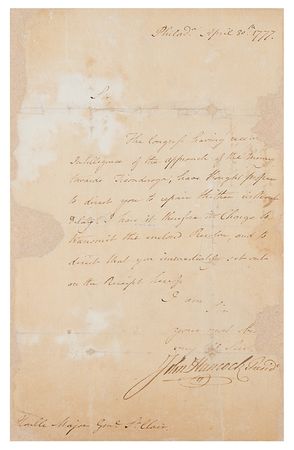 Philad.a April 30.th 1777.
Sir,
The Congress having rec.d
Intelligence of the approach of the Enemy
towards Ticonderoga, have thought proper
to direct you to repair thither without
delay. I have it therefore in Charge to
transmit the enclosed Resolve, and to
direct that you immediately set out
on the Receipt hereof.
I am, Sir
your most
John Hancock Presid.
Major Gen.l St. Clair